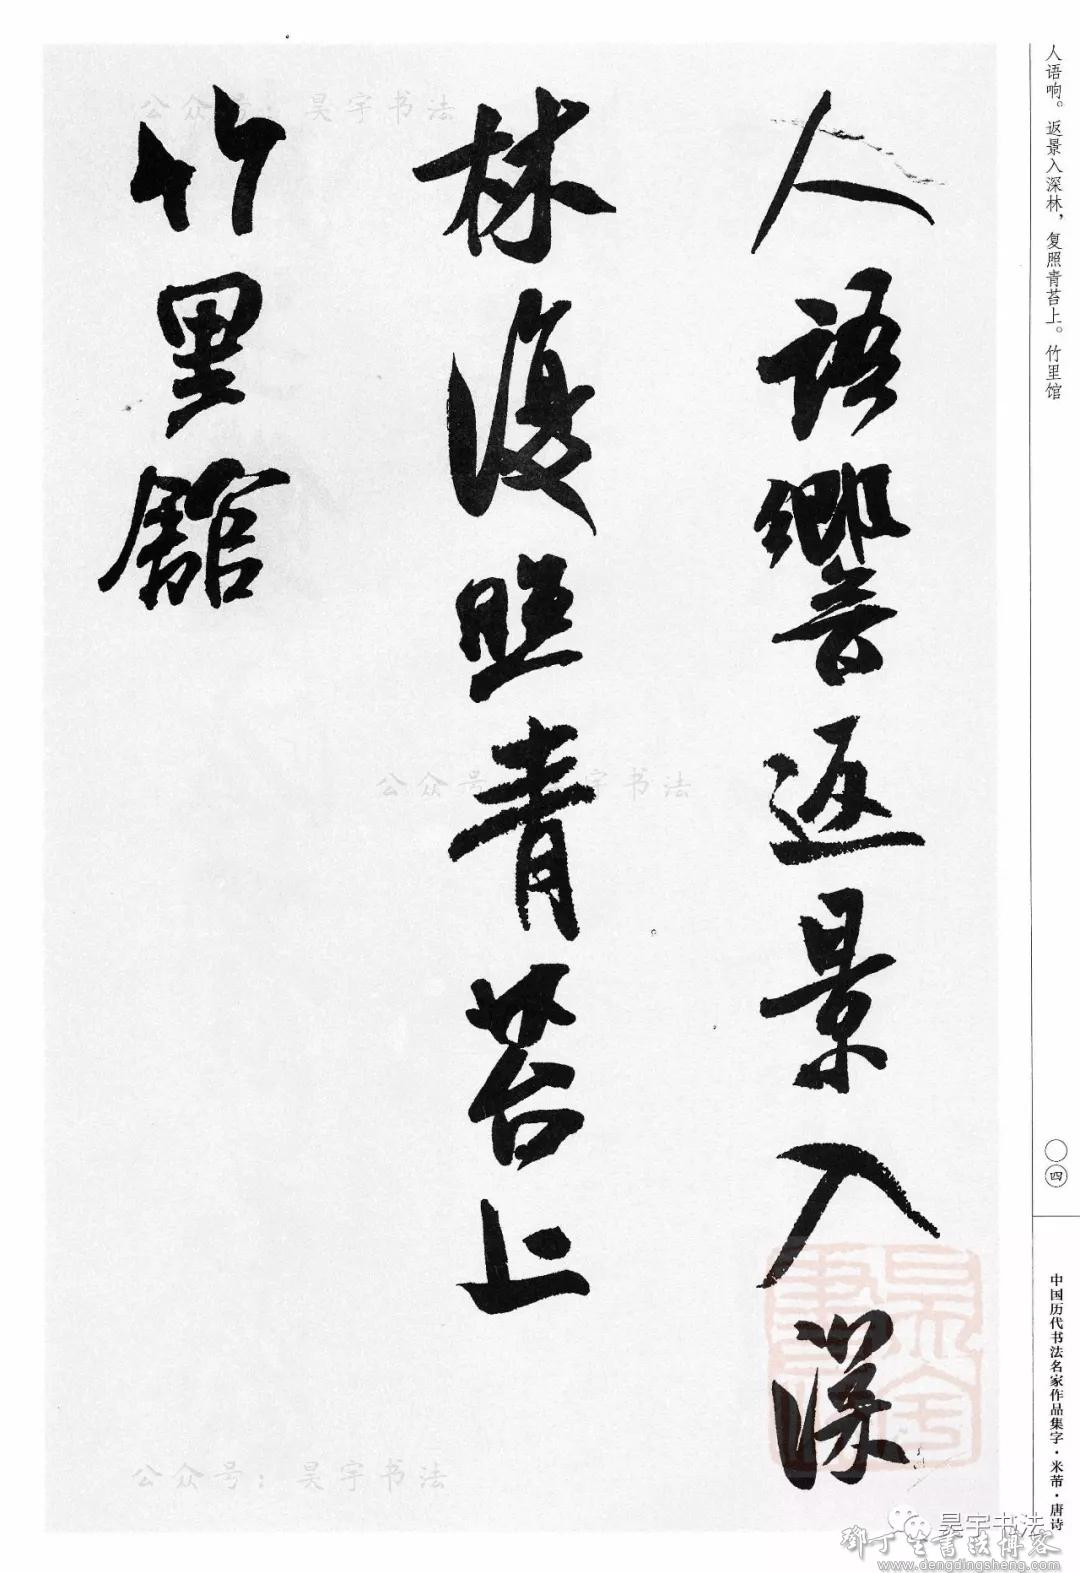 人語響返景入深
林復照青苔上
竹里館
人语响。返景入深林，复照青苔上。竹里馆
〇四
中国历代书法名家作品集字·米芾·唐诗
公众号：昊宇书法
公众号：昊宇书法
公众号：昊宇书法
昊宇书法
鄧丁生書法博客
www.dengdingsheng.com